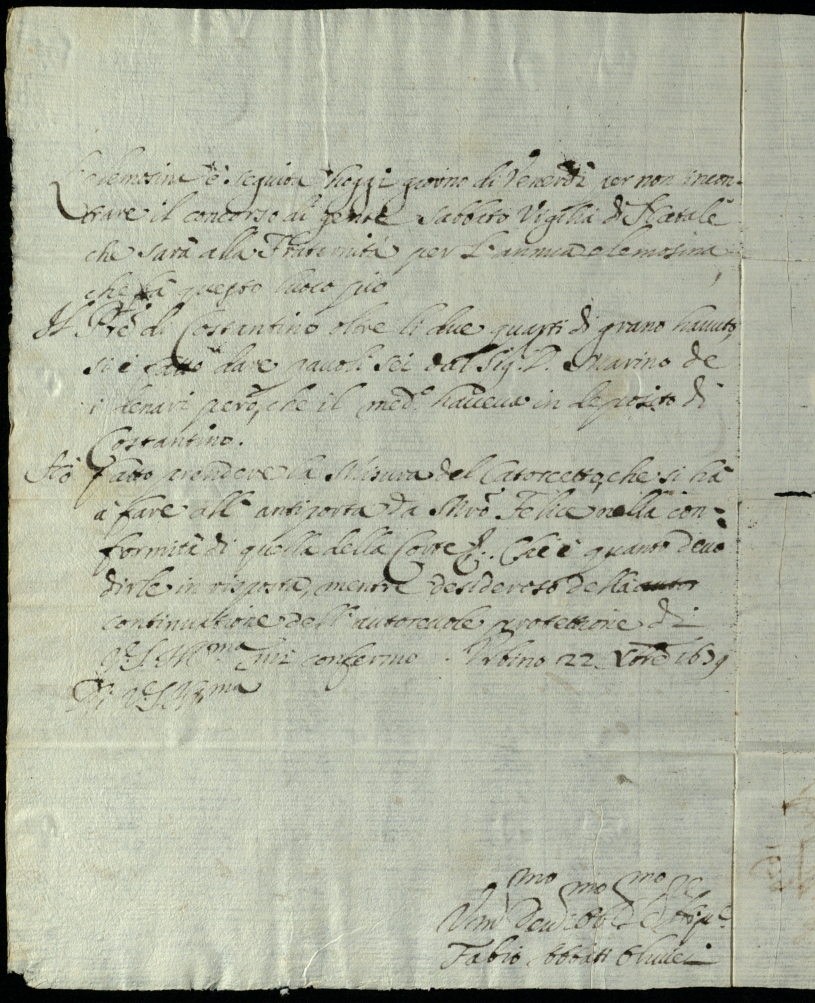 L'elemosina è seguita hoggi giorno di Venerdì per non incon-
trare il concorso di gente Sabbato Vigilia di Natale
che sarà alla Fraternità per l'annua elemosina
che fà questo luoco pio
Il Pre di Costantino oltre li due quarti di grano havuto,
si è fatto dare pavoli sei dal Sig. D. Marino de
i denari però, che il med.o haveva in deposito di
Costantino.
Hò fatto prendere la Misura del Catorcetto, che si hà
à fare all'antiporta da Mro Felice nella con=
formità di quella della Corte &. Che è quanto devo
dirle in risposta, mentre desideroso della autor
continuatione dell'autorevole protettione di
V.S. Ill.ma mi confermo. Urbino 22. Xbre 1639
Di V.S. Ill.ma
Um.mo Dev.mo Obl.mo
Fabio Abbati